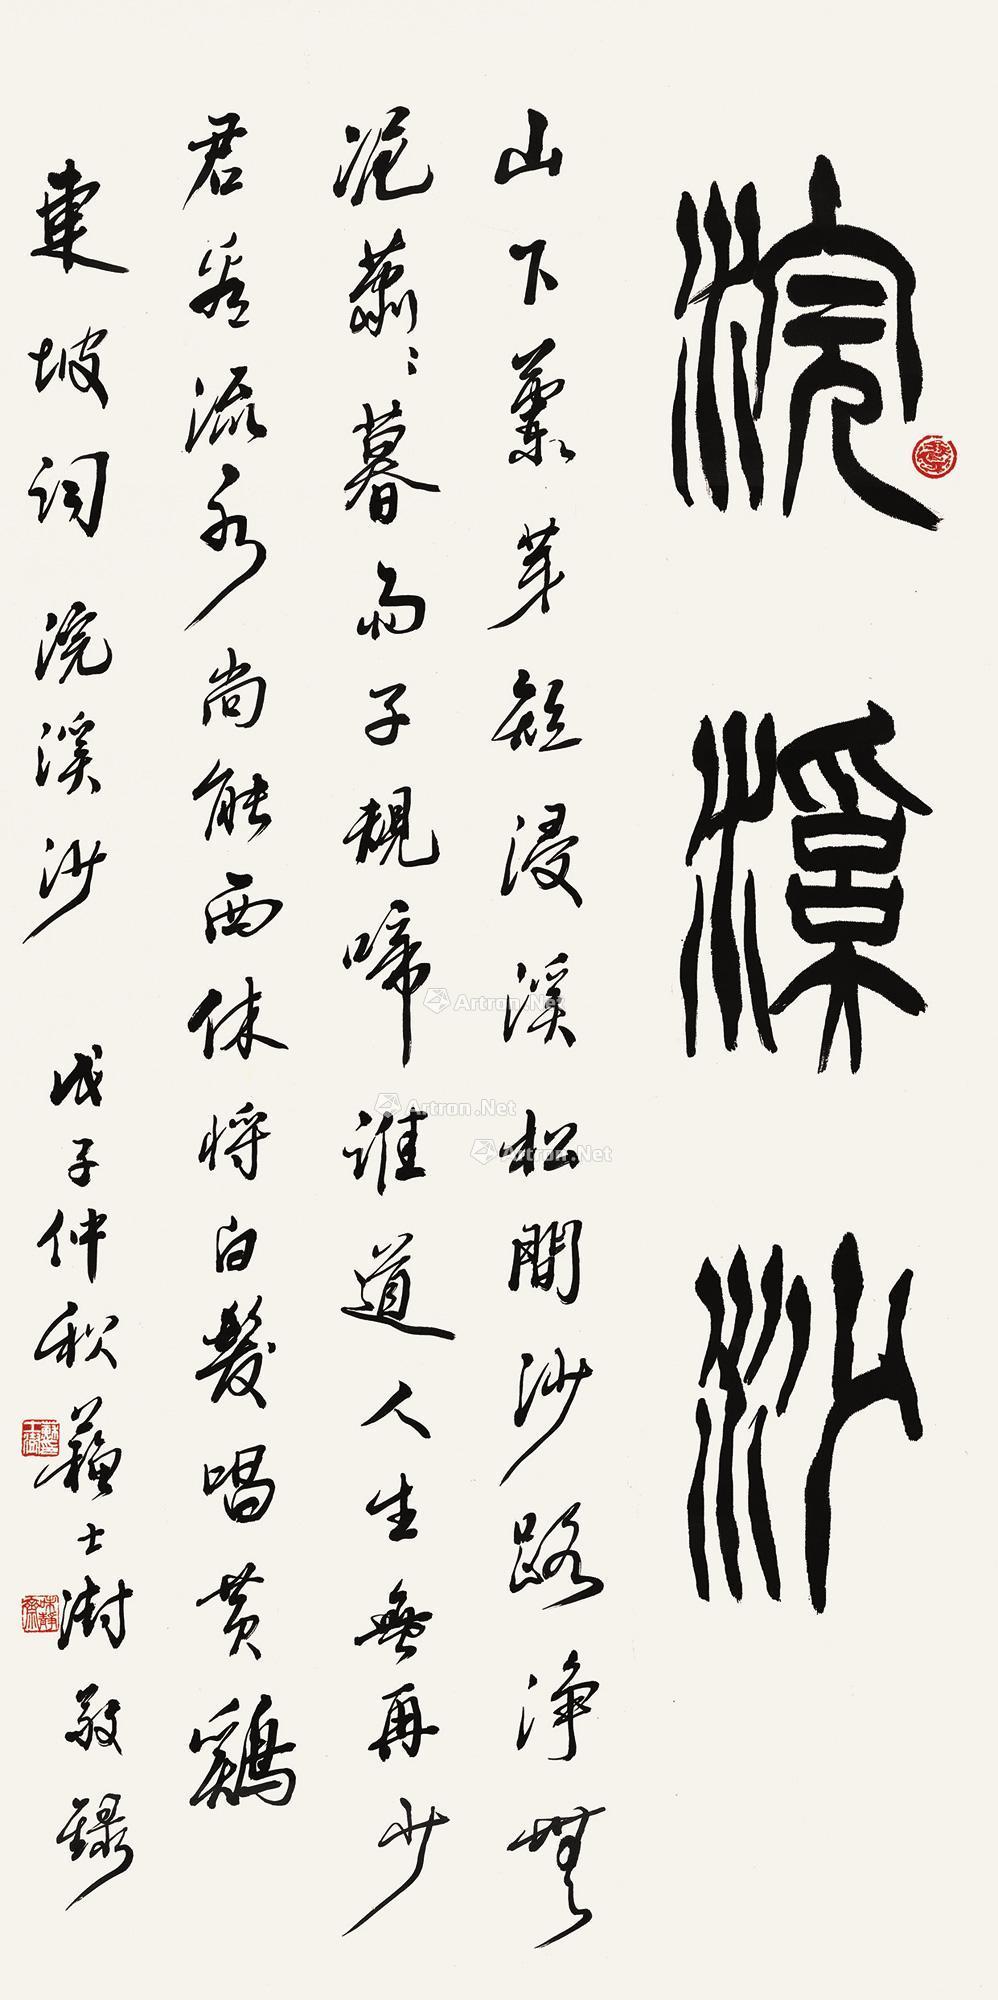 浣溪沙
山下蘭芽短浸溪松間沙路淨無
泥蕭〻暮雨子規啼誰道人生無再少
君看流水尚能西休将白髮唱黄鷄
東坡詞 浣溪沙 戊子仲秋蘇士澍敬録
Artron.Net
Artron.Net
Artron.Net